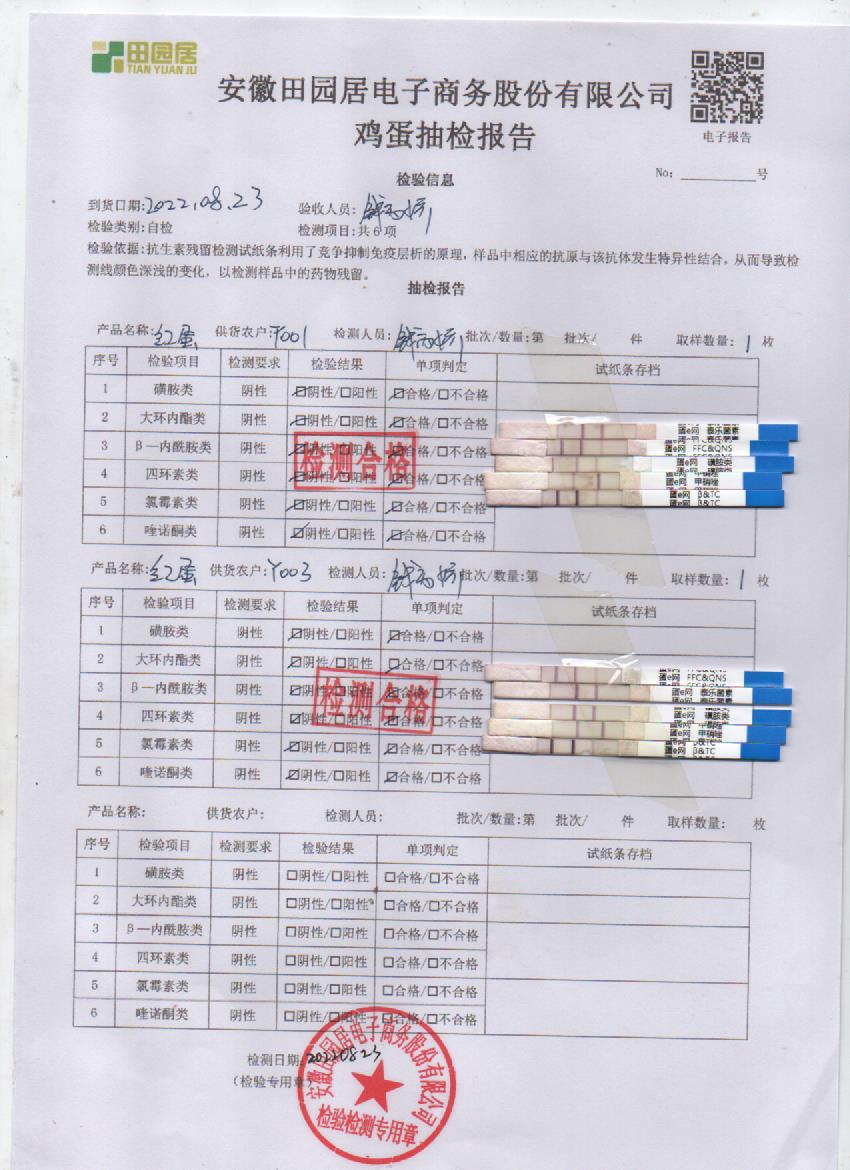 田园居
TIAN YUAN JU
安徽田园居电子商务股份有限公司
鸡蛋抽检报告
电子报告
检验信息
No: 号
到货日期:2022.08.23 验收人员:
检验类别:自检 检测项目:共6项
检验依据:抗生素残留检测试纸条利用了竞争抑制免疫层析的原理，样品中相应的抗原与该抗体发生特异性结合，从而导致检
测线颜色深浅的变化，以检测样品中的药物残留。
抽检报告
产品名称:红蛋 供货农户:Y001 检测人员: 批次/数量:第 批次/ 件 取样数量:1枚
序号 检验项目 检测要求 检验结果 单项判定 试纸条存档
1 磺胺类 阴性 ☑阴性/□阳性 ☑合格/□不合格
2 大环内酯类 阴性 ☑阴性/□阳性 ☑合格/□不合格
3 β—内酰胺类 阴性 ☑阴性/□阳性 ☑合格/□不合格
4 四环素类 阴性 ☑阴性/□阳性 ☑合格/□不合格
5 氯霉素类 阴性 ☑阴性/□阳性 ☑合格/□不合格
6 喹诺酮类 阴性 ☑阴性/□阳性 ☑合格/□不合格
检测合格
蛋e网 泰乐菌素
蛋e网 FFC&QNS
蛋e网 磺胺类
蛋e网 甲硝唑
蛋e网 β&TC
产品名称:红蛋 供货农户:Y003 检测人员: 批次/数量:第 批次/ 件 取样数量:1枚
序号 检验项目 检测要求 检验结果 单项判定 试纸条存档
1 磺胺类 阴性 ☑阴性/□阳性 ☑合格/□不合格
2 大环内酯类 阴性 ☑阴性/□阳性 ☑合格/□不合格
3 β—内酰胺类 阴性 ☑阴性/□阳性 ☑合格/□不合格
4 四环素类 阴性 ☑阴性/□阳性 ☑合格/□不合格
5 氯霉素类 阴性 ☑阴性/□阳性 ☑合格/□不合格
6 喹诺酮类 阴性 ☑阴性/□阳性 ☑合格/□不合格
检测合格
蛋e网 FFC&QNS
蛋e网 泰乐菌素
蛋e网 磺胺类
蛋e网 甲硝唑
蛋e网 β&TC
产品名称: 供货农户: 检测人员: 批次/数量:第 批次/ 件 取样数量: 枚
序号 检验项目 检测要求 检验结果 单项判定 试纸条存档
1 磺胺类 阴性 □阴性/□阳性 □合格/□不合格
2 大环内酯类 阴性 □阴性/□阳性 □合格/□不合格
3 β—内酰胺类 阴性 □阴性/□阳性 □合格/□不合格
4 四环素类 阴性 □阴性/□阳性 □合格/□不合格
5 氯霉素类 阴性 □阴性/□阳性 □合格/□不合格
6 喹诺酮类 阴性 □阴性/□阳性 □合格/□不合格
检测日期:20220823
(检验专用章)
安徽田园居电子商务股份有限公司
检验检测专用章